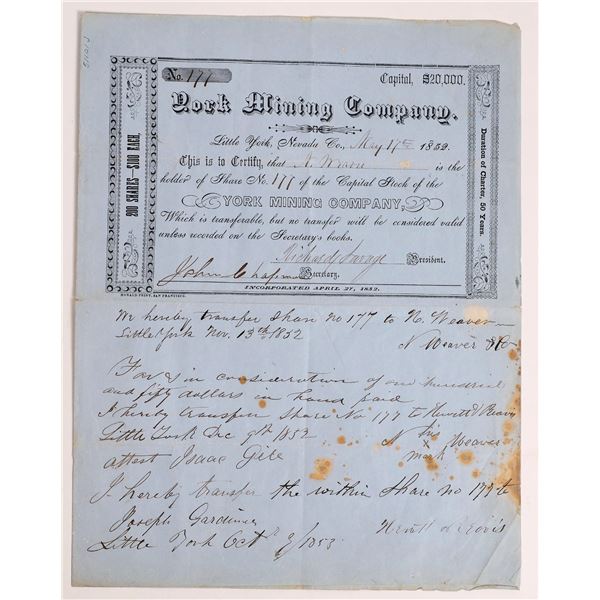 No. 177
Capital, $20,000.
York Mining Company.
Little York, Nevada Co., May 17th 1852.
This is to Certify, that N. Weaver is the
holder of Share No. 177 of the Capital Stock of the
YORK MINING COMPANY,
Which is transferable, but no transfer will be considered valid
unless recorded on the Secretary's books,
Richard Savage President.
John Chapman Secretary.
INCORPORATED APRIL 27, 1852.
200 SHARES—$100 EACH.
Duration of Charter, 50 Years.
MONSLD PRINT, SAN FRANCISCO.
We hereby transfer share no 177 to N. Weaver
Little York Nov. 13th 1852
N Weaver & Co
For & in consideration of one hundred
and fifty dollars in hand paid
I hereby transfer Share No 177 to Hewitt & Reavis
Little York Dec 9th 1852
N his x mark Weaver
attest Isaac Gile
I hereby transfer the within Share no 177 to
Joseph Gardiner
Little York Oct 3/1853
Hewitt & Reavis